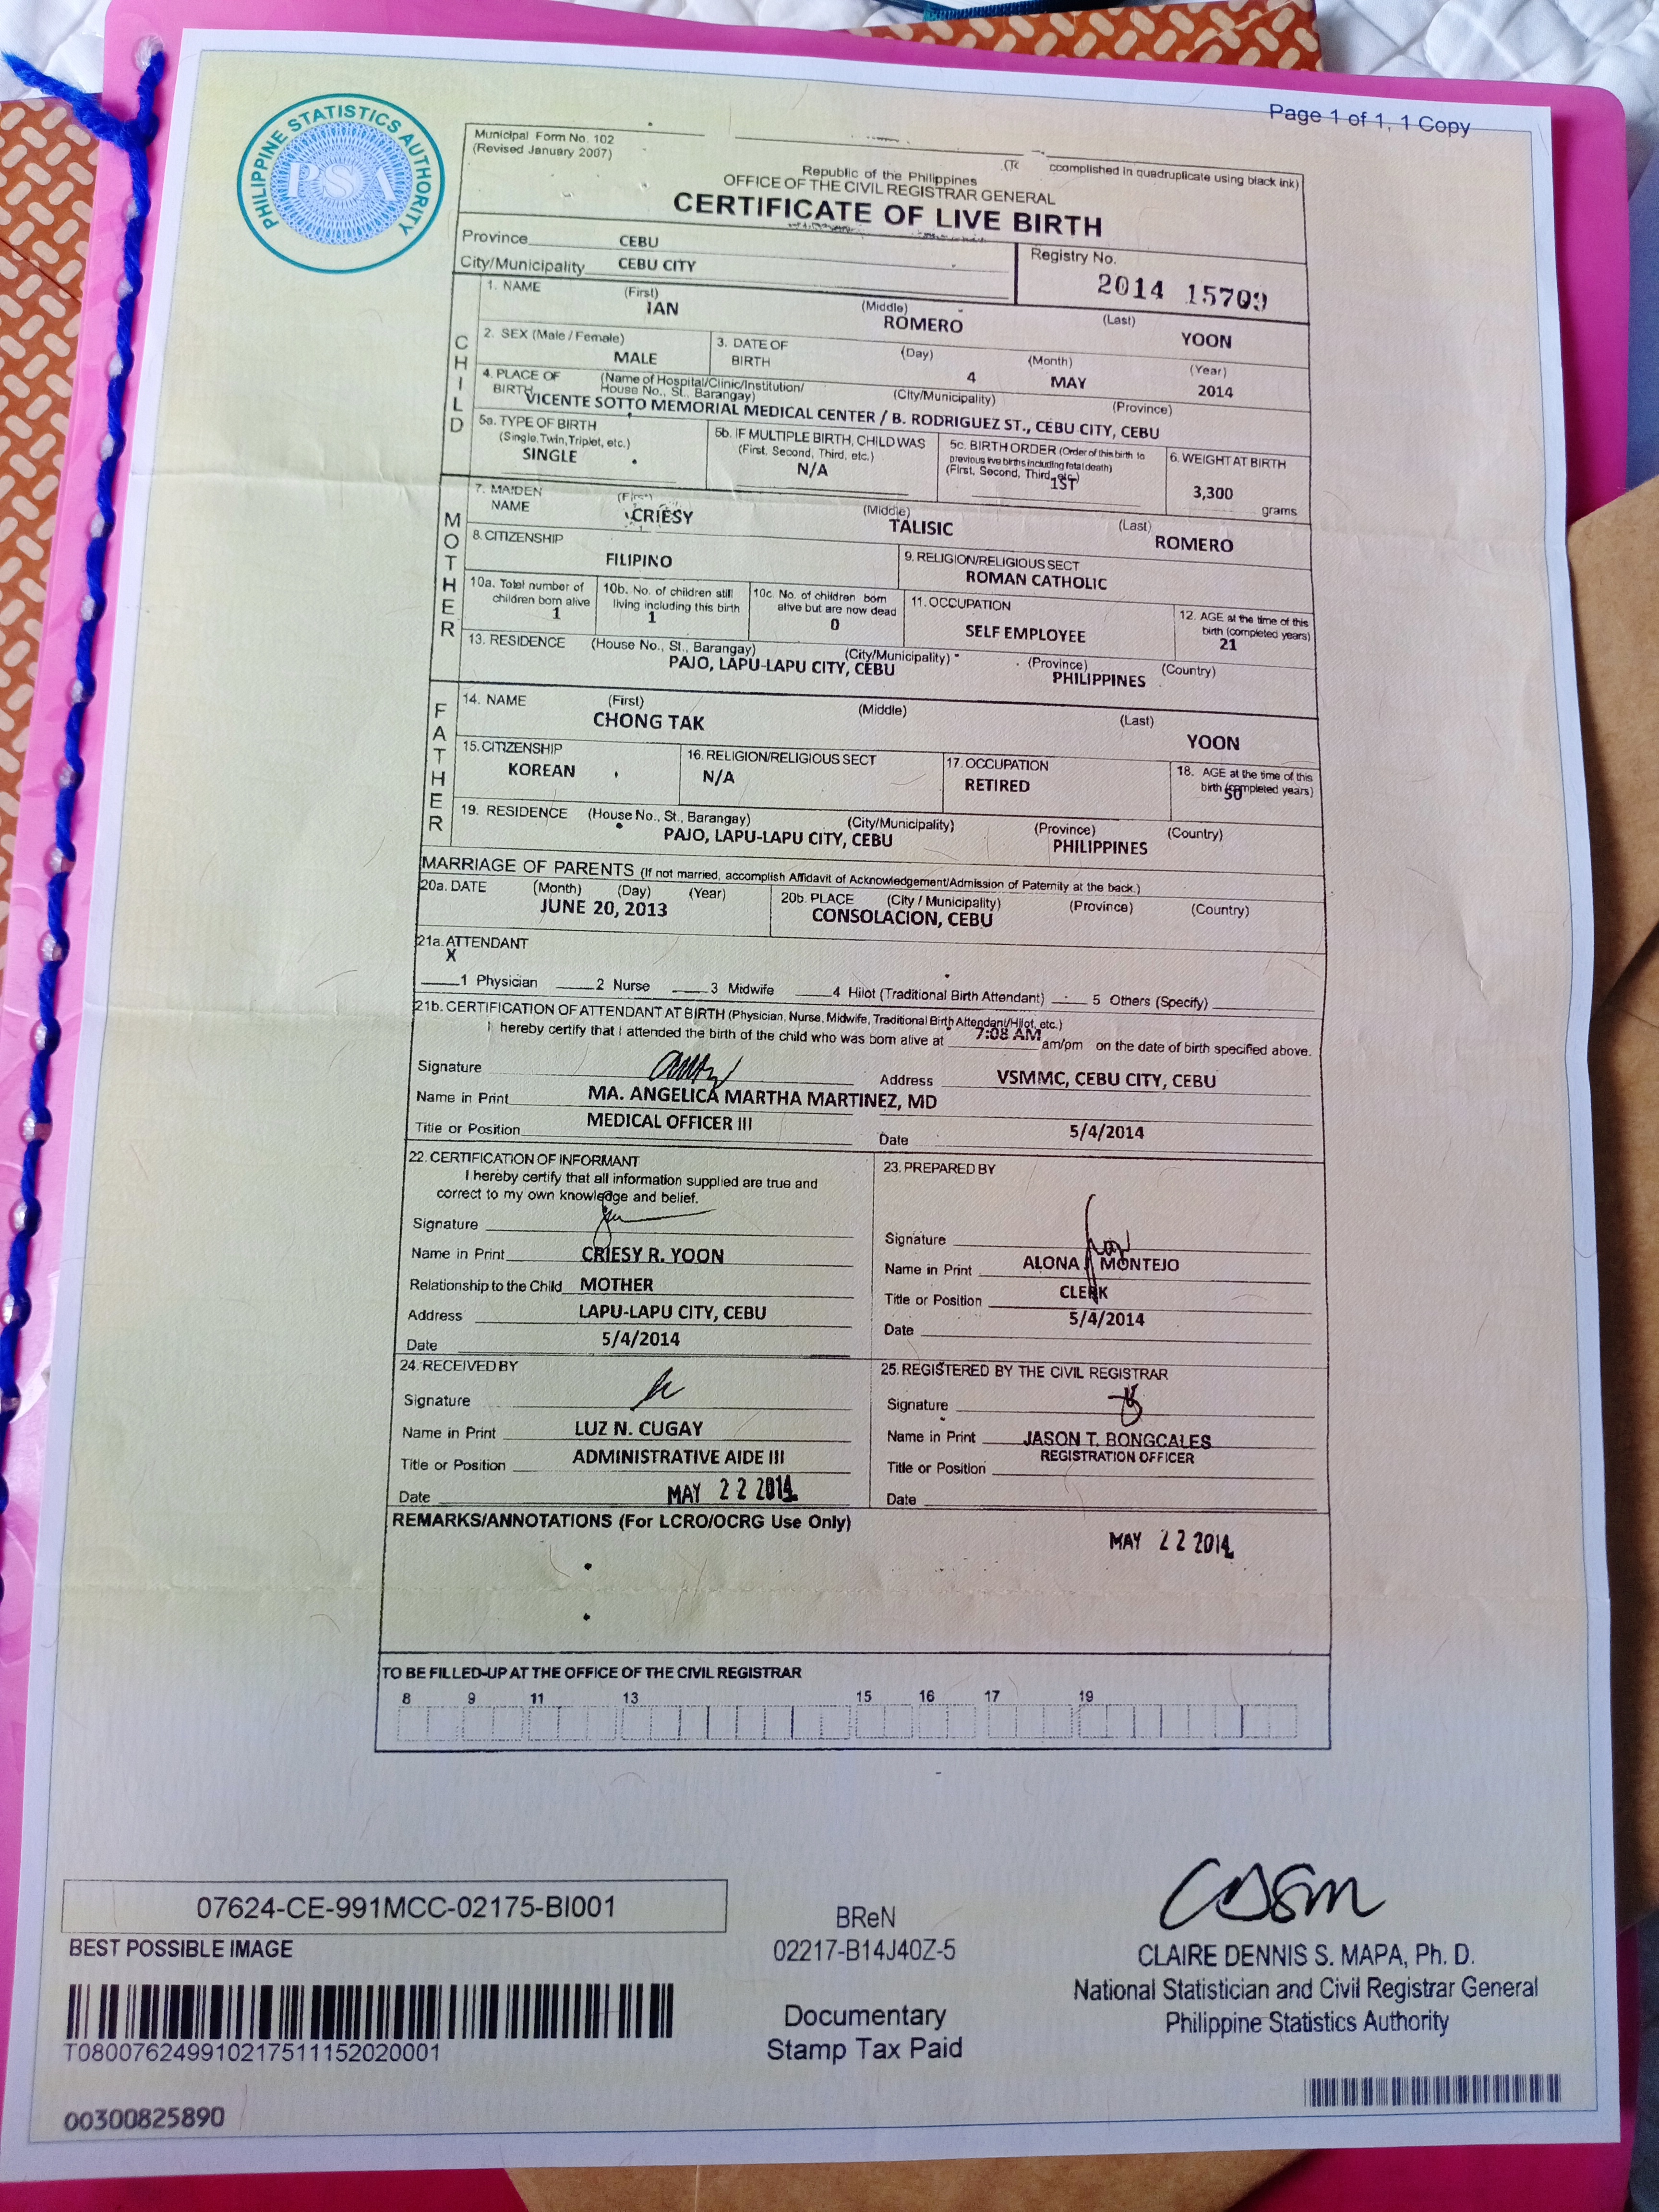 Page 1 of 1, 1 Copy
PHILIPPINE STATISTICS AUTHORITY
PSA
Municipal Form No. 102
(Revised January 2007)
ccomplished in quadruplicate using black ink)
Republic of the Philippines
OFFICE OF THE CIVIL REGISTRAR GENERAL
CERTIFICATE OF LIVE BIRTH
Province CEBU
City/Municipality CEBU CITY
Registry No.
2014 15709
CHILD
1. NAME (First) (Middle) (Last)
IAN ROMERO YOON
2. SEX (Male / Female)
MALE
3. DATE OF BIRTH (Day) (Month) (Year)
4 MAY 2014
4. PLACE OF BIRTH (Name of Hospital/Clinic/Institution/ House No., St., Barangay) (City/Municipality) (Province)
VICENTE SOTTO MEMORIAL MEDICAL CENTER / B. RODRIGUEZ ST., CEBU CITY, CEBU
5a. TYPE OF BIRTH
(Single, Twin, Triplet, etc.)
SINGLE
5b. IF MULTIPLE BIRTH, CHILD WAS
(First, Second, Third, etc.)
N/A
5c. BIRTH ORDER (Order of this birth to
previous live births including fetal death)
(First, Second, Third, etc.)
1ST
6. WEIGHT AT BIRTH
3,300 grams
MOTHER
7. MAIDEN NAME (First) (Middle) (Last)
CRIESY TALISIC ROMERO
8. CITIZENSHIP
FILIPINO
9. RELIGION/RELIGIOUS SECT
ROMAN CATHOLIC
10a. Total number of
children born alive
1
10b. No. of children still
living including this birth
1
10c. No. of children born
alive but are now dead
0
11. OCCUPATION
SELF EMPLOYEE
12. AGE at the time of this
birth (completed years)
21
13. RESIDENCE (House No., St., Barangay) (City/Municipality) (Province) (Country)
PAJO, LAPU-LAPU CITY, CEBU PHILIPPINES
FATHER
14. NAME (First) (Middle) (Last)
CHONG TAK YOON
15. CITIZENSHIP
KOREAN
16. RELIGION/RELIGIOUS SECT
N/A
17. OCCUPATION
RETIRED
18. AGE at the time of this
birth (completed years)
50
19. RESIDENCE (House No., St., Barangay) (City/Municipality) (Province) (Country)
PAJO, LAPU-LAPU CITY, CEBU PHILIPPINES
MARRIAGE OF PARENTS (If not married, accomplish Affidavit of Acknowledgement/Admission of Paternity at the back.)
20a. DATE (Month) (Day) (Year)
JUNE 20, 2013
20b. PLACE (City / Municipality) (Province) (Country)
CONSOLACION, CEBU
21a. ATTENDANT
X
1 Physician 2 Nurse 3 Midwife 4 Hilot (Traditional Birth Attendant) 5 Others (Specify)
21b. CERTIFICATION OF ATTENDANT AT BIRTH (Physician, Nurse, Midwife, Traditional Birth Attendant/Hilot, etc.)
I hereby certify that I attended the birth of the child who was born alive at 7:08 AM am/pm on the date of birth specified above.
Signature
Address VSMMC, CEBU CITY, CEBU
Name in Print MA. ANGELICA MARTHA MARTINEZ, MD
Title or Position MEDICAL OFFICER III
Date 5/4/2014
22. CERTIFICATION OF INFORMANT
I hereby certify that all information supplied are true and
correct to my own knowledge and belief.
Signature
Name in Print CRIESY R. YOON
Relationship to the Child MOTHER
Address LAPU-LAPU CITY, CEBU
Date 5/4/2014
23. PREPARED BY
Signature
Name in Print ALONA MONTEJO
Title or Position CLERK
Date 5/4/2014
24. RECEIVED BY
Signature
Name in Print LUZ N. CUGAY
Title or Position ADMINISTRATIVE AIDE III
Date MAY 22 2014
25. REGISTERED BY THE CIVIL REGISTRAR
Signature
Name in Print JASON T. BONGCALES
REGISTRATION OFFICER
Title or Position
Date
MAY 22 2014
REMARKS/ANNOTATIONS (For LCRO/OCRG Use Only)
TO BE FILLED-UP AT THE OFFICE OF THE CIVIL REGISTRAR
8 9 11 13 15 16 17 19
07624-CE-991MCC-02175-BI001
BEST POSSIBLE IMAGE
T080076249910217511152020001
00300825890
BReN
02217-B14J40Z-5
Documentary
Stamp Tax Paid
CLAIRE DENNIS S. MAPA, Ph. D.
National Statistician and Civil Registrar General
Philippine Statistics Authority